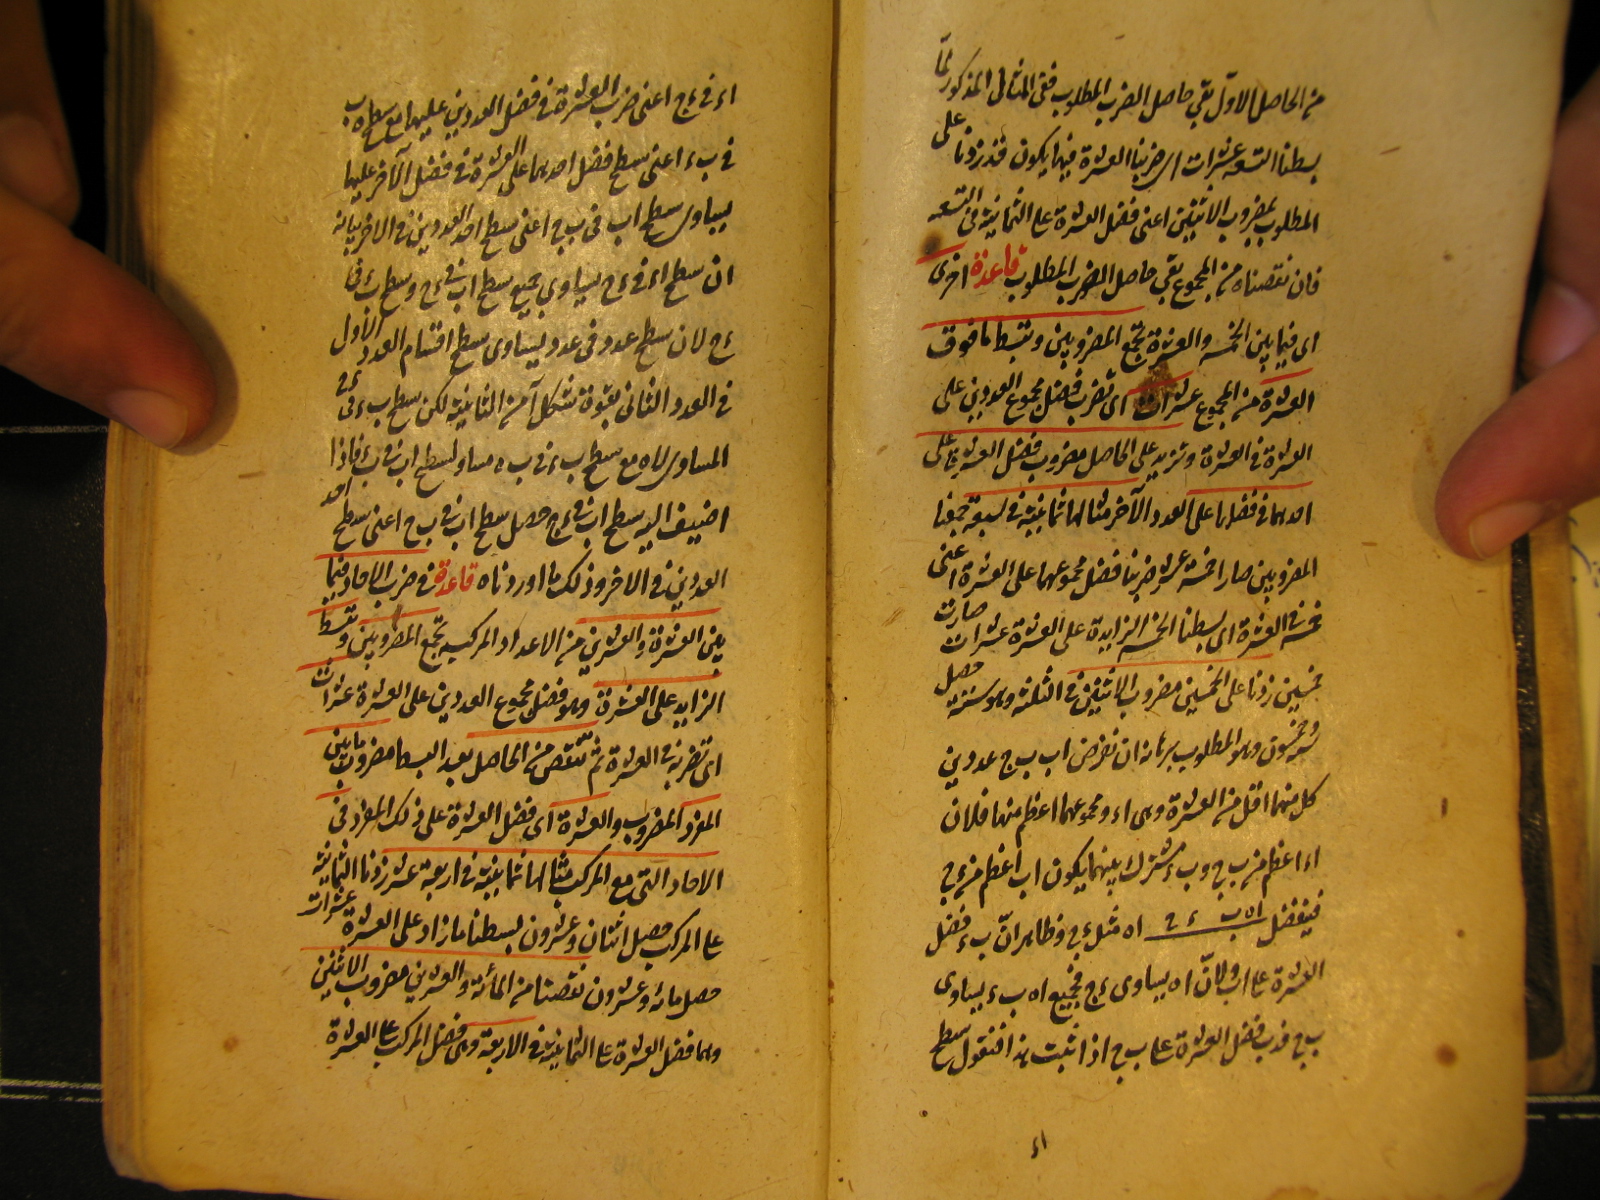 من الحاصل الاول بقي حاصل الضرب المطلوب ففى المثال المذكور لمّا
بسطنا التسعة عشرات اى ضربنا العشرة فيها يكون قد زدنا على
المطلوب بمضروب الاثنين اعنى فضل العشرة على الثمانية فى التسعة
فان نقصناه من المجموع بقى حاصل الضرب المطلوب قاعدة اخرى
اى فيما بين الخمسة والعشرة تجمع المضروبين وتبسط ما فوق
العشرة من المجموع عشرات اى تضرب فضل مجموع العددين على
العشرة فى العشرة وتزيد على الحاصل مضروب فضل العشرة على
احدهما فى فضلها على العدد الآخر مثالها ثمانية فى سبعة جمعنا
المضروبين صارا خمسة عشر ضربنا فضل مجموعهما على العشرة اعنى
خمسة فى العشرة اى بسطنا الخمسة الزايدة على العشرة عشرات صارت
خمسين زدنا على الخمسين مضروب الاثنين فى الثلثة وهو ستة حصل
ستة وخمسون وهو المطلوب برهانه ان نفرض اب ب ج عددين
كل منهما اقل من العشرة وهى اء ومجموعهما اعظم منها فلان
اء اعظم من ب ج و ب ء مشترك بينهما يكون اب اعظم من ء ج
فيفضل اه ب ء ج اه مثل ء ج وظاهر ان ب ء فضل
العشرة على اب ولان اه يساوى ء ج فجميع اه ب ء يساوى
ب ج فه ب فضل العشرة على ب ج اذا ثبت هذا فنقول سطح
اء
اء فى ء ج اعنى ضرب العشرة فى فضل العددين عليها مع سطح ه ب
فى ب ء اعنى سطح فضل احدهما على العشرة فى فضل الآخر عليها
يساوى سطح اب فى ب ج اعنى سطح احد العددين فى الاخر بيانه
ان سطح اء فى ء ج يساوى جميع سطح اب فى ء ج وسطح ب ء فى
ء ج لان سطح عدد فى عدد يساوى سطح اقسام العدد الاول
فى العدد الثانى بقوة شكل آ من الثانية لكن سطح ب ء فى ء ج
المساوى لاه مع سطح ب ء فى ب ه مساو لسطح اب فى ب ء فاذا
اضيف اليه سطح اب فى ء ج حصل سطح اب فى ب ج اعنى سطح احد
العددين فى الاخر وذلك ما اوردناه قاعدة فى ضرب الاحاد فيما
بين العشرة والعشرين من الاعداد المركبة تجمع المضروبين وتبسط
الزايد على العشرة وهو فضل مجموع العددين على العشرة عشرات
اى تضربه فى العشرة ثم تنقص من الحاصل بعد البسط مضروب ما بين
المفرد المضروب والعشرة اى فضل العشرة على ذلك المفرد فى
الاحاد التى مع المركب مثالها ثمانية فى اربعة عشر زدنا الثمانية
على المركب حصل اثنان وعشرون بسطنا ما زاد على العشرة عشرات
حصل مائة وعشرون نقصنا من المائة والعشرين مضروب الاثنين
وهما فضل العشرة على الثمانية فى الاربعة وهى فضل المركب على العشرة